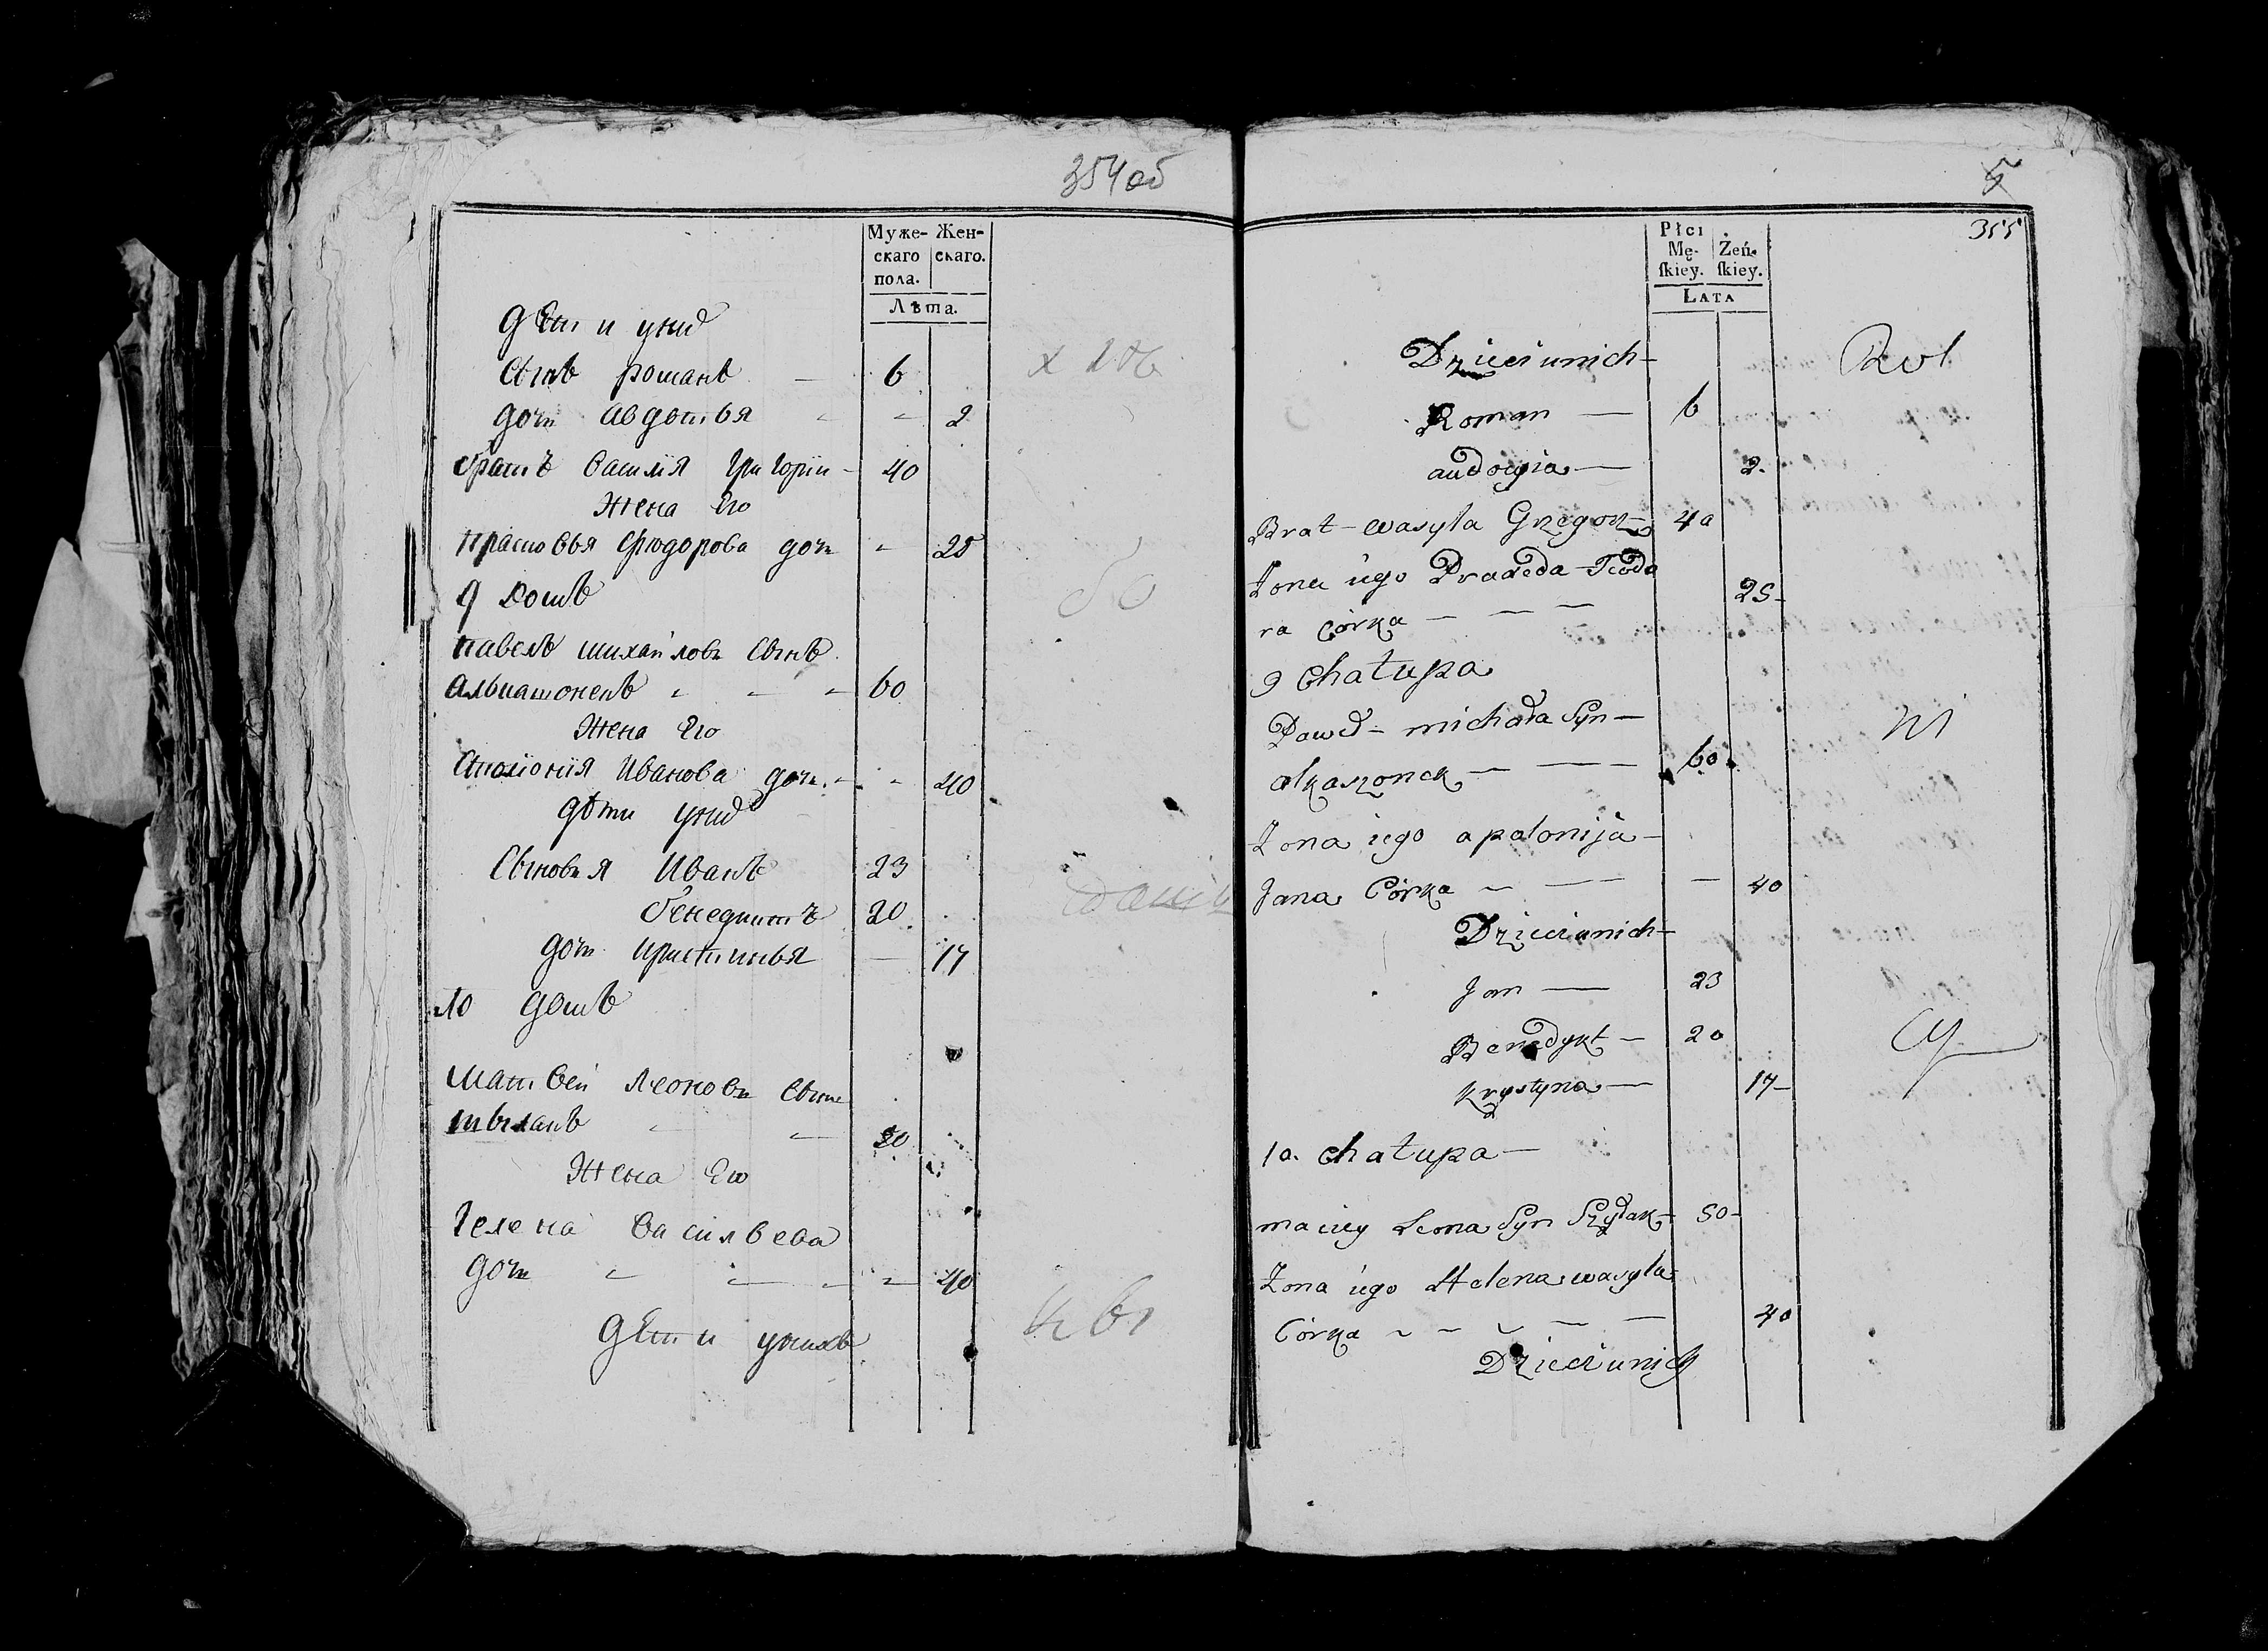 354 об
Муже- Жен-
скаго скаго.
пола.
Лѣта.
дѣти у них
Сынъ романъ — 6
дочь авдотья - - 2
братъ василия григорiи - 40
жена его
прасковья фиодорова дочь - 25
9 домъ
павелъ михайловъ сынъ
алькашонекъ - - - 60
жена его
аполiонiя иванова дочь - - 40
дѣти у них
Сыновья иванъ 23
бенедиктъ 20
дочь кристинья — 17
10 домъ
матвей леоновъ сынъ
шыланъ - - 50
жена его
гелена васильева
дочь - - - - 40
дѣти у нихъ
5
355
Płci
Mę- Żeń-
ſkiey. ſkiey.
Lata
Dzieci unich-
Roman — 6
audocyia — 2.
Brat - wasyla Gregorz 40
Zona iego Praxeda Teodo
ra Córka - — — 25-
9 Chałupa
Paweł - michała Syn —
alkaszonek - — — 60
Zona iego apolonija -
Jana Córka - — — 40
Dzieci unich-
Jan — 23
Benedykt - 20
Krystyna — 17-
10. Chałupa —
maciey Leona Syn Szyłak - 50-
Zona iego Helena wasyla
Córka - - - — — 40
Dzieci unich